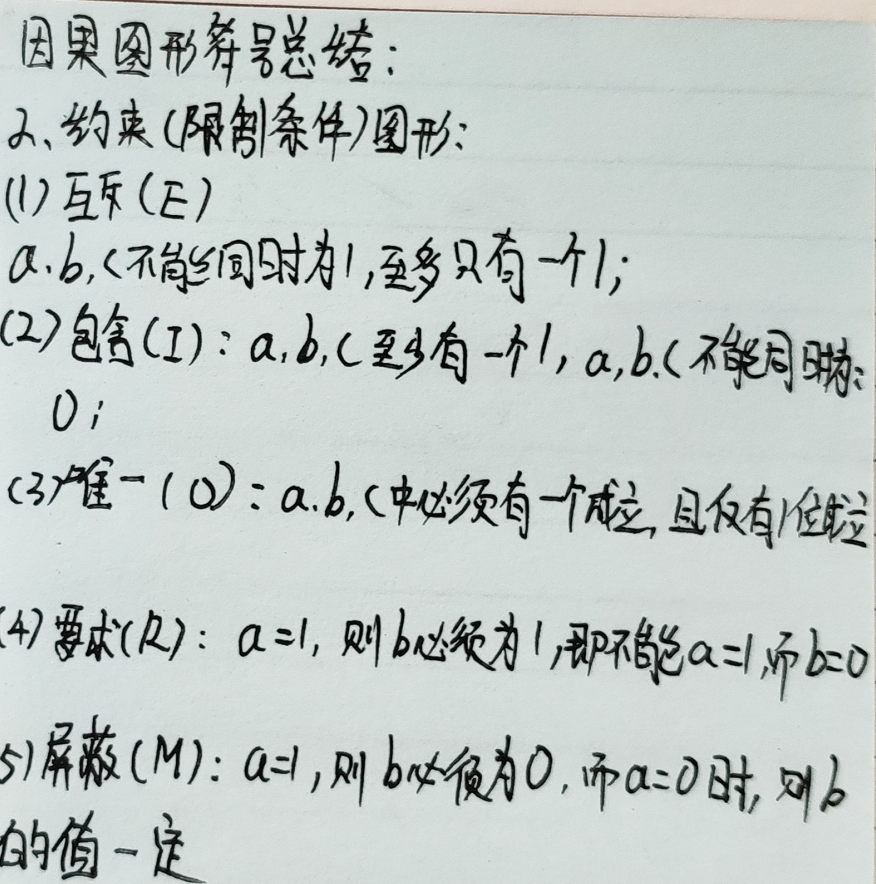 因果图形符号总结:
2、约束(限制条件)图形:
(1)互斥(E)
a.b,c不能同时为1,至多只有一个1;
(2)包含(I):a,b,c至少有一个1,a,b.c不能同时为:
0;
(3)唯一(O):a.b,c中必须有一个成立,且仅有1位成立
(4)要求(R):a=1,则b必须为1,即不能a=1,而b=0
5)屏蔽(M):a=1,则b必须为0,而a=0时,则b
的值一定